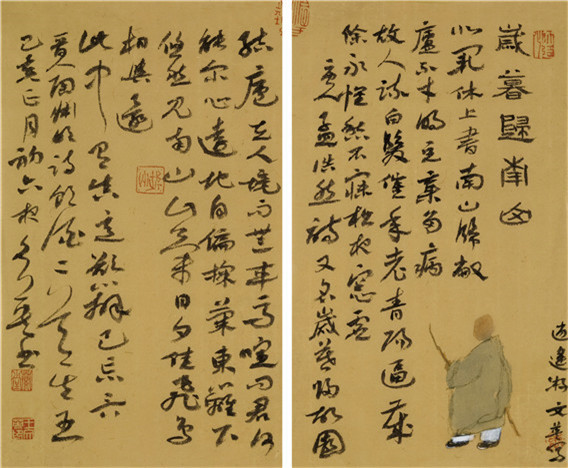 歲暮歸南山
北闕休上書南山歸敝
廬不才明主棄多病
故人疏白髮催年老青陽逼歲
除永懷愁不寐松夜窗虛
唐人孟浩然詩又名歲暮歸故園
結廬在人境而無車馬喧問君何
能尔心遠地自偏採菊東籬下
悠然見南山山氣日夕佳飛鳥
相與還
此中有真意欲辯已忘言
晉人陶渊明詩飲酒二十五
己亥正月初六夜書